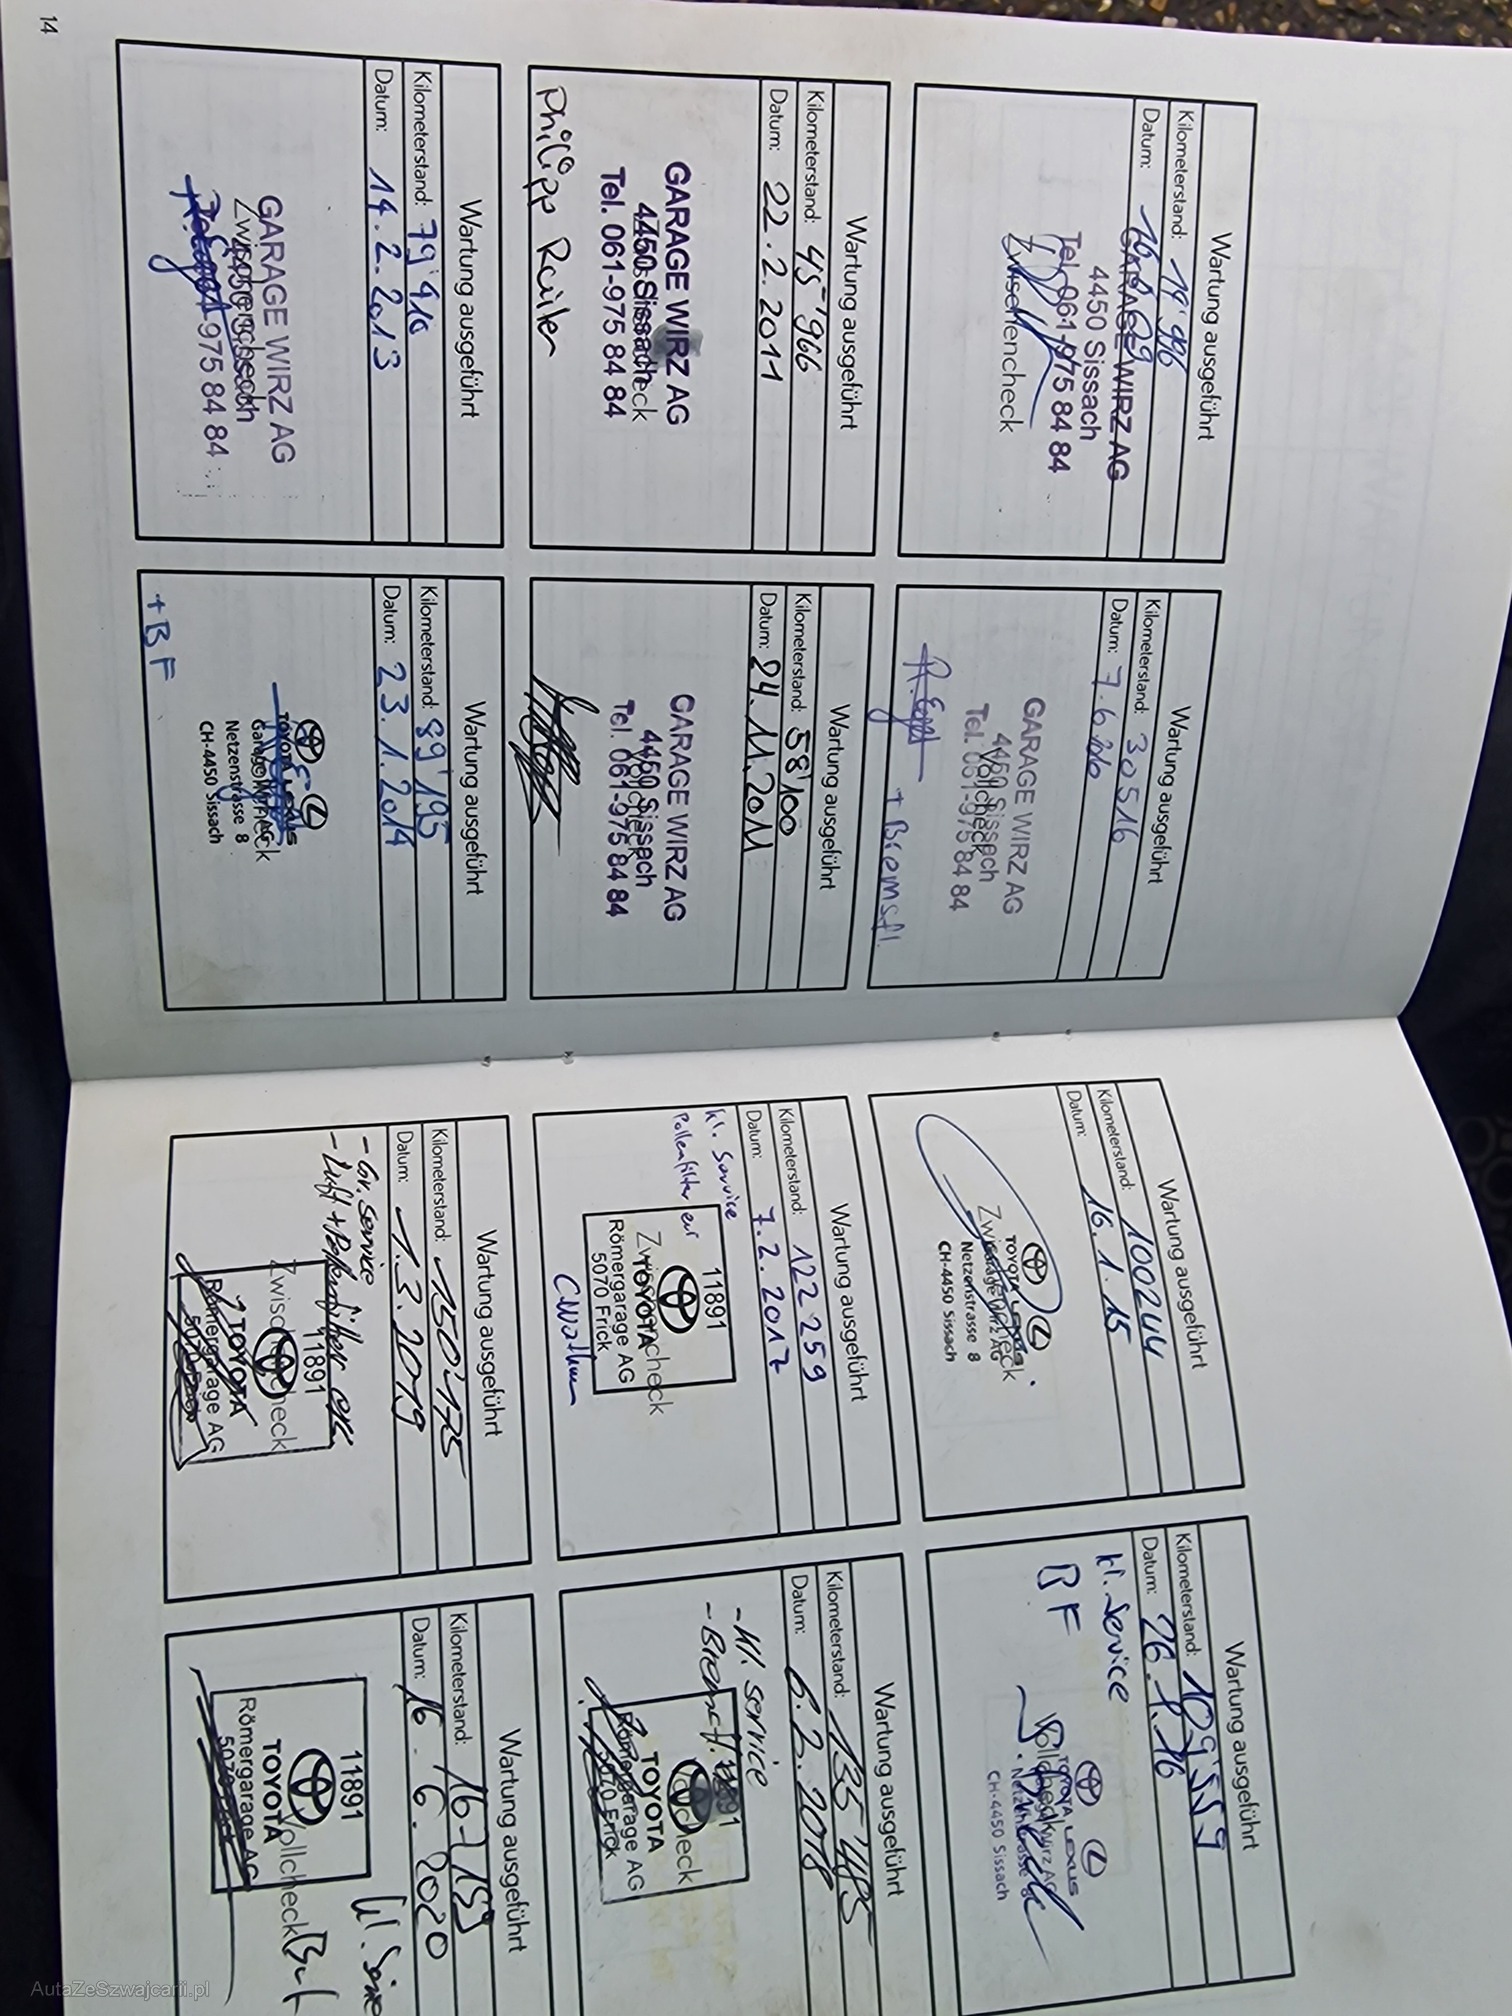 Wartung ausgeführt
Kilometerstand: 14'996
Datum:
GARAGE WIRZ AG
4450 Sissach
Tel. 061-975 84 84
Zwischencheck
Wartung ausgeführt
Kilometerstand: 30516
Datum: 7.6.2010
GARAGE WIRZ AG
4450 Sissach
Vollcheck
Tel. 061-975 84 84
+ Bremsfl.
Wartung ausgeführt
Kilometerstand: 45'966
Datum: 22.2.2011
GARAGE WIRZ AG
4450 Sissach
Zwischencheck
Tel. 061-975 84 84
Philipp
Wartung ausgeführt
Kilometerstand: 58'100
Datum: 24.11.2011
GARAGE WIRZ AG
4450 Sissach
Vollcheck
Tel. 061-975 84 84
Wartung ausgeführt
Kilometerstand: 79'410
Datum: 14.2.2013
GARAGE WIRZ AG
Zwischencheck
4450 Sissach
975 84 84
Wartung ausgeführt
Kilometerstand: 89'195
Datum: 23.1.2014
TOYOTA LEXUS
Garage Wirz AG
Netzenstrasse 8
CH-4450 Sissach
+ BF
14
Wartung ausgeführt
Kilometerstand: 100244
Datum: 16.1.15
TOYOTA LEXUS
Zwischencheck
Garage Wirz AG
Netzenstrasse 8
CH-4450 Sissach
Wartung ausgeführt
Kilometerstand: 109'559
Datum: 26.1.16
kl. Service
BF
TOYOTA LEXUS
Vollcheck
Garage Wirz AG
Netzenstrasse 8
CH-4450 Sissach
Wartung ausgeführt
Kilometerstand: 122 259
Datum: 7.2.2017
kl. Service
Pollenfilter er
11891
TOYOTA
Zwischencheck
Römergarage AG
5070 Frick
Wartung ausgeführt
Kilometerstand: 135'485
Datum: 6.2.2018
- Kl. Service
- Bremsfl.
11891
Vollcheck
TOYOTA
Römergarage AG
5070 Frick
Wartung ausgeführt
Kilometerstand: 150'175
Datum: 1.3.2019
- Gr. Service
- Luft + Pollenfilter ers.
11891
Zwischencheck
TOYOTA
Römergarage AG
5070 Frick
Wartung ausgeführt
Kilometerstand: 167 159
Datum: 16.6.2020
Kl.
11891
Vollcheck
TOYOTA
Römergarage AG
5070 Frick
AutaZeSzwajcarii.pl